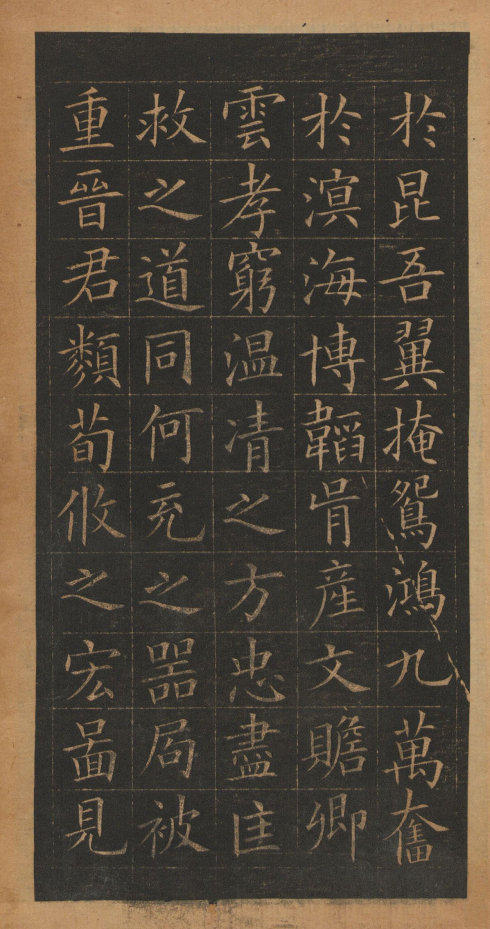 於昆吾翼掩鴛鴻九萬奮
於溟海博韜胷産文贍卿
雲孝窮温凊之方忠盡匡
救之道同何充之器局被
重晉君類荀攸之宏啚見